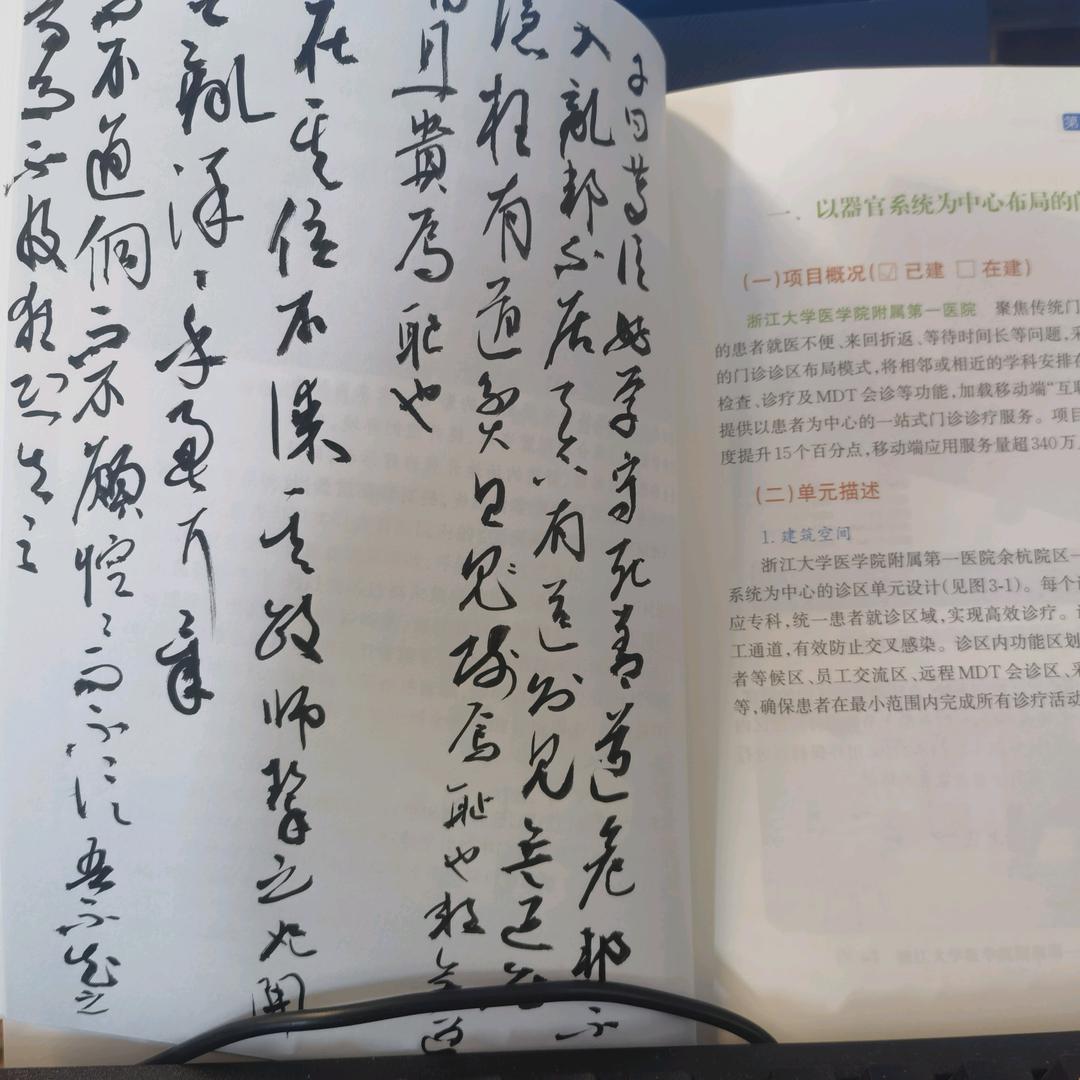 子曰篤信好学守死善道危邦不
入亂邦不居天下有道則見無道則
隐邦有道貧且賤焉恥也邦無道
且貴焉恥也
在其位不謀其政師摯之始関
亂洋々乎盈耳哉
而不直侗而不願悾々而不信吾不知之
不及猶恐失之
第
一、以器官系统为中心布局的门
(一)项目概况(☑ 已建 □ 在建)
浙江大学医学院附属第一医院 聚焦传统门
的患者就医不便、来回折返、等待时间长等问题,采
的门诊诊区布局模式,将相邻或相近的学科安排在
检查、诊疗及MDT会诊等功能,加载移动端“互联
提供以患者为中心的一站式门诊诊疗服务。项目
度提升15个百分点,移动端应用服务量超340万
(二)单元描述
1. 建筑空间
浙江大学医学院附属第一医院余杭院区一
系统为中心的诊区单元设计(见图3-1)。每个诊
应专科,统一患者就诊区域,实现高效诊疗。
工通道,有效防止交叉感染。诊区内功能区划
者等候区、员工交流区、远程MDT会诊区、采
等,确保患者在最小范围内完成所有诊疗活动